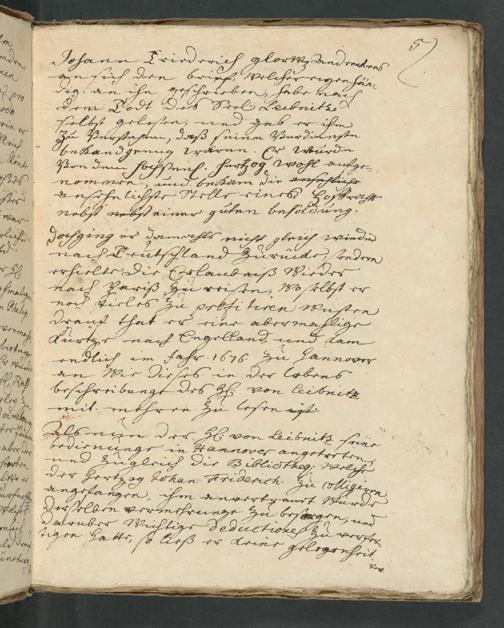 5
Johann Friederich glorw. andenckens
an sich den brief, welchen eigenhän-
dig an ihn geschrieben, habe nach
dem Todt des Seel. Leibnitz
selbst gelesen, und gab er ihm
zu verstehen, daß seine Verdienste
bekandgenug wären. Er wurde
von dem Hochseel. Hertzog wohl aufge-
nommen, und bekam die
ansehnlichste Stelle eines Hoffrahts
nebst einer guten besoldung.
doch ging er damahls nicht gleich wieder
nach Teutschland zurücke, sondern
erhielte die Erlaubniß wieder
nach Pariß zu reisen, wo selbst er
noch vieles zu profitiren wusten
drauf that er eine abermahlige
Kurtze nach Engelland und kam
endlich im Jahr 1676 zu Hannover
an. Wie dieses in der lebens
beschreibunge des H. von Leibnitz
mit mehren zu lesen ist.
Als nun der H. von Leibnitz seine
bedienunge in Hannover angetreten
und zugleich die Bibliotheq, welche
der Hertzog Johan Friderich zu colligiren
angefangen, ihm anvertrauet wurde
derselben vermehrunge zu besorgen, und
darüber wichtige Deductiones zu verfer-
tigen hatte, so ließ er keine gelegenheit